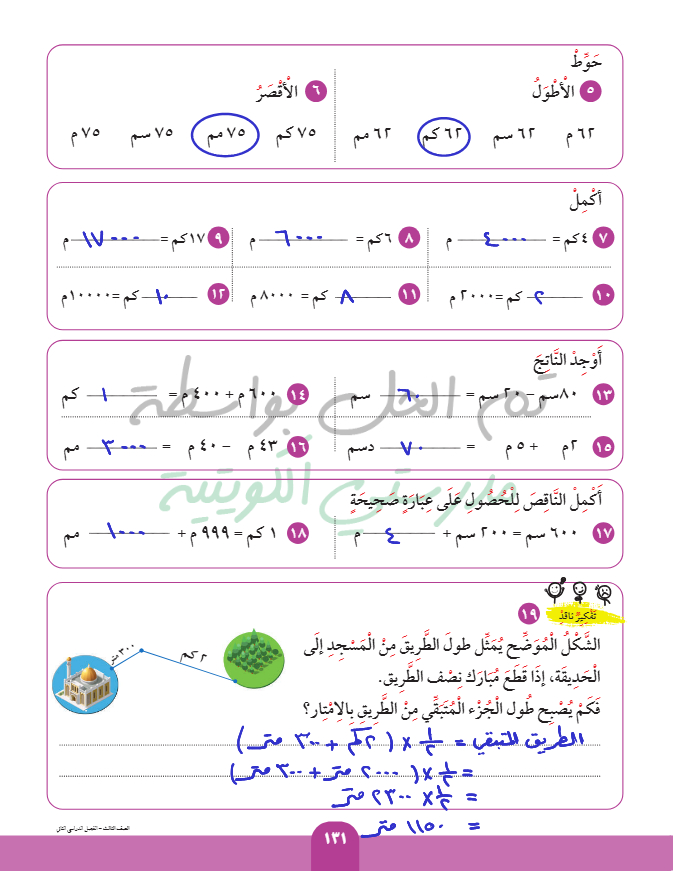 حَوِّطْ
٥ الْأَطْوَلُ
٦٢ م ٦٢ سم ٦٢ كم ٦٢ مم
٦ الْأَقْصَرُ
٧٥ كم ٧٥ مم ٧٥ سم ٧٥ م
أكْمِلْ
٧ ٤ كم = ٤٠٠٠ م ٨ ٦ كم = ٦٠٠٠ م ٩ ١٧ كم = ١٧٠٠٠ م
١٠ ٢ كم = ٢٠٠٠ م ١١ ٨ كم = ٨٠٠٠ م ١٢ ١٠ كم = ١٠٠٠٠ م
أَوْجِدْ النَّاتِجَ
١٣ ٨٠ سم – ٢٠ سم = ٦٠ سم ١٤ ٦٠٠ م + ٤٠٠ م = ١ كم
١٥ ٢ م + ٥ م = ٧٠ دسم ١٦ ٤٣ م – ٤٠ م = ٣٠٠٠ مم
تم الحل بواسطة
مدرستي الكويتية
أَكْمِلْ النَّاقِصَ لِلْحُصُولِ عَلَى عِبَارَةٍ صَحِيحَةٍ
١٧ ٦٠٠ سم = ٢٠٠ سم + ٤ م ١٨ ١ كم = ٩٩٩ م + ١٠٠٠ مم
تَفْكِيرٌ نَاقِدٌ ١٩
الشَّكْلُ الْمُوَضَّحُ يُمَثِّل طولَ الطَّرِيقَ مِنْ الْمَسْجِدِ إلَى
الْحَدِيقَة، إذَا قَطَعَ مُبَارَك نِصْف الطَّرِيق.
فَكَمْ يُصْبِح طُول الْجُزْء الْمُتَبَقِّي مِنْ الطَّرِيق بِالِامْتِار؟
٢ كم ٣٠٠ متر
الطريق المتبقي = ١/٢ × ( ٢ كم + ٣٠٠ متر )
= ١/٢ × ( ٢٠٠٠ متر + ٣٠٠ متر )
= ١/٢ × ٢٣٠٠ متر
= ١١٥٠ متر
الصف الثالث – الفصل الدراسي الثاني
١٣١